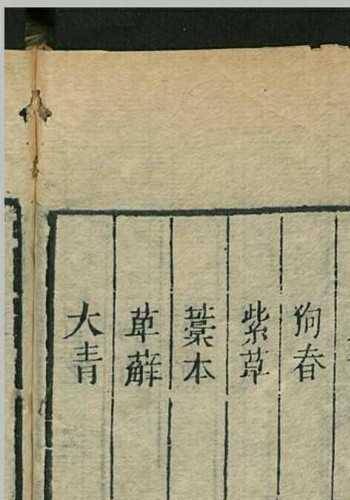 狗春
紫草
藁本
萆薢
大青